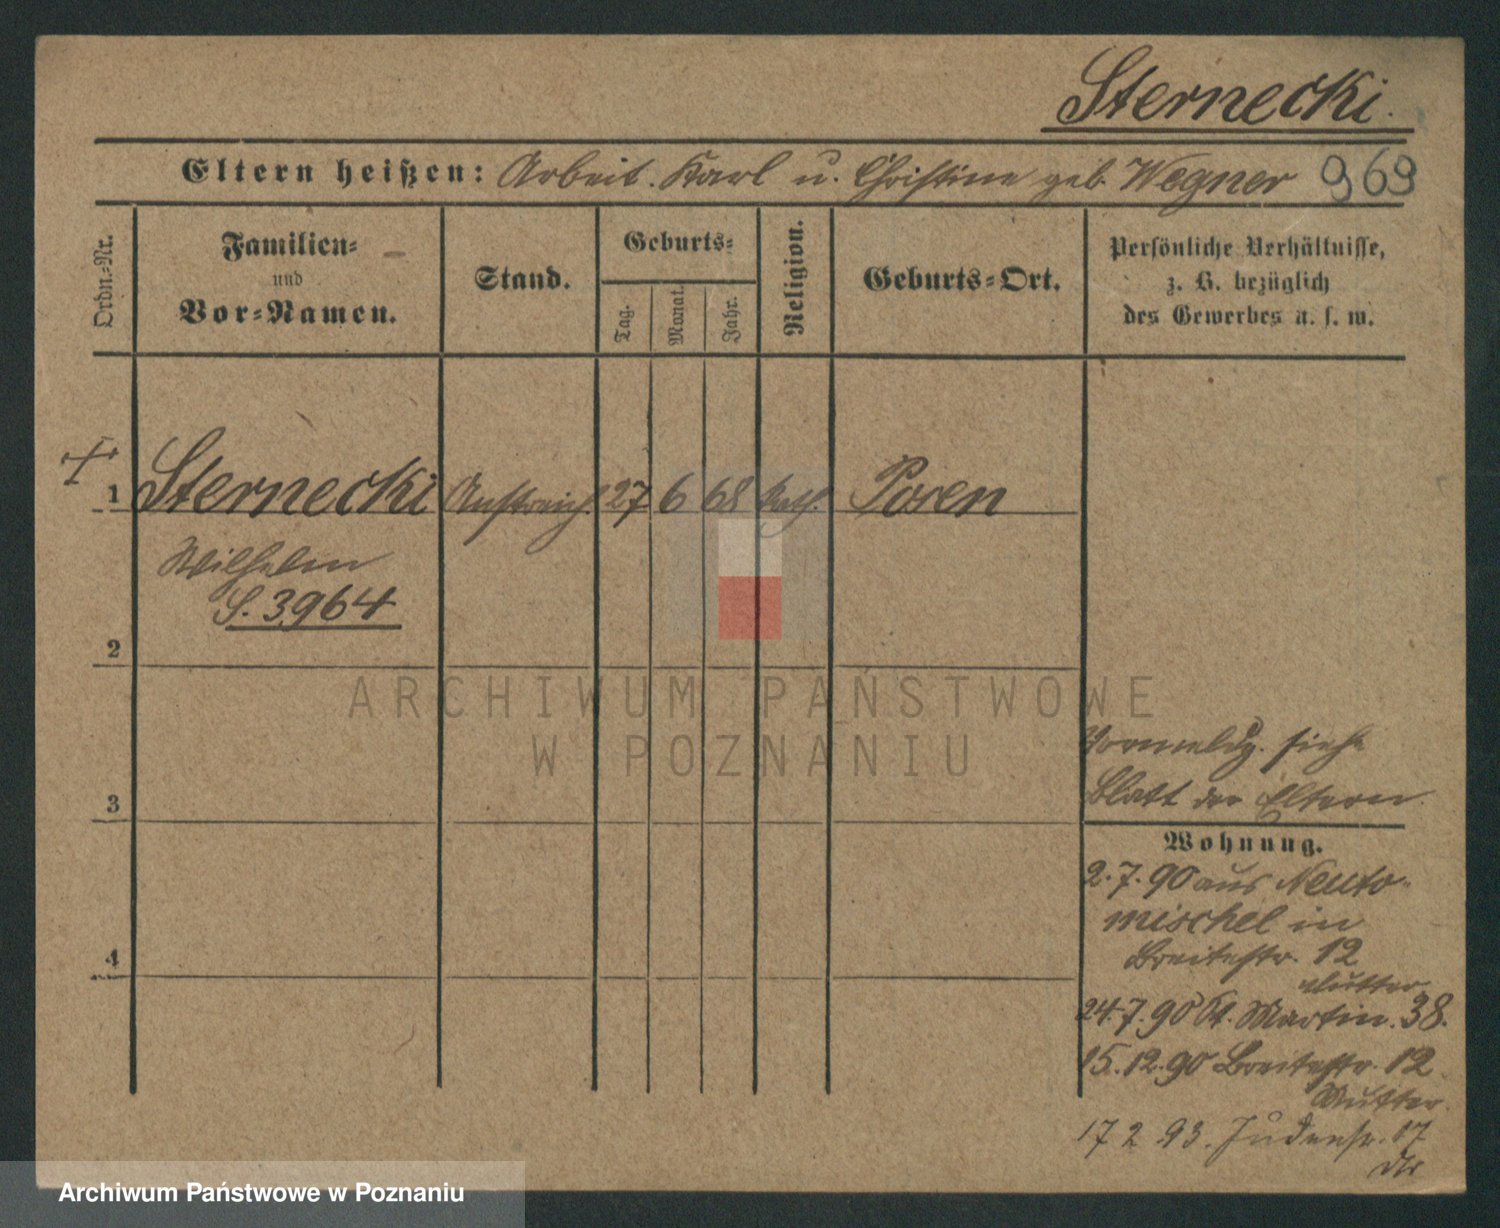 Sternecki.
Eltern heißen: Arbeit. Karl u. Christine geb. Wegner 969
Ordn.-Nr.
Familien-
und
Vor-Namen.
Stand.
Geburts-
Tag.
Monat.
Jahr.
Religion.
Geburts-Ort.
Persönliche Verhältnisse,
z. B. bezüglich
des Gewerbes u. s. w.
1 Sternecki Anstreich. 27 6 68 kath. Posen
Wilhelm
S. 3964
2
3
4
Vormeldg. siehe
Blatt der Eltern
Wohnung.
2.7.90 aus Neuto-
mischel in
Breitestr. 12
Mutter
24.7.90 St. Martin. 38.
15.12.90 Breitestr. 12
Mutter.
17 2 93. Judenstr. 17
ARCHIWUM PAŃSTWOWE
W POZNANIU
Archiwum Państwowe w Poznaniu